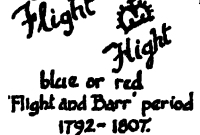 Flight
Flight
blue or red
'Flight and Barr' period
1792-1807.